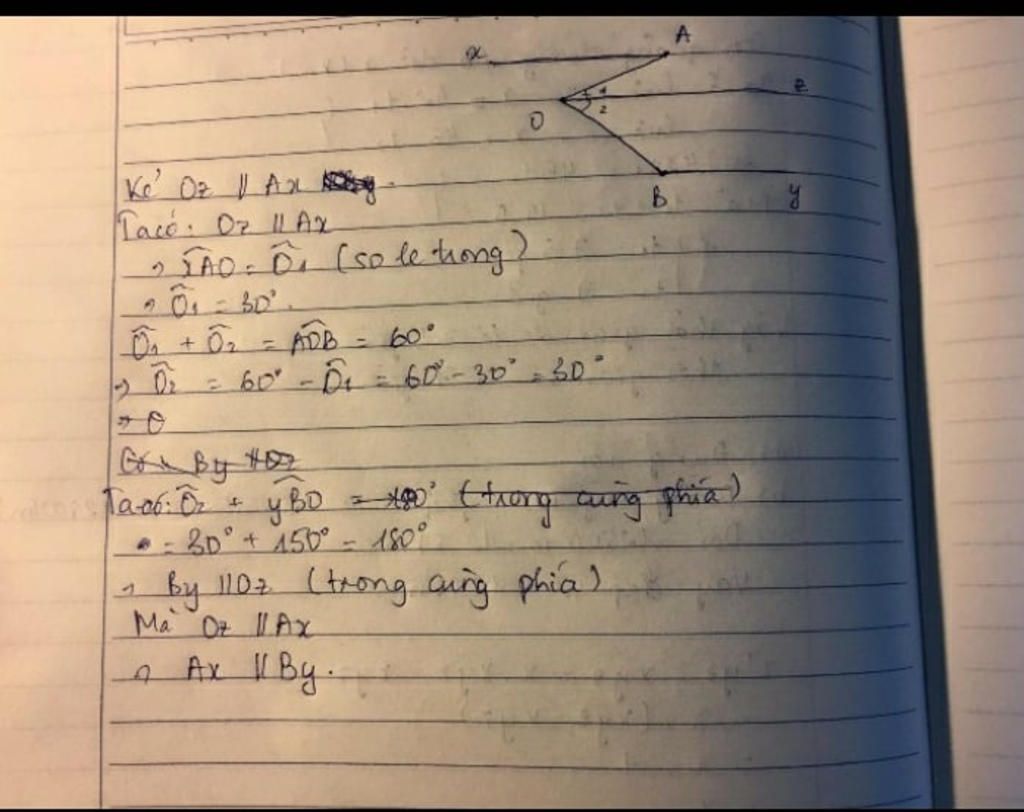 x
A
1
z
O
2
B
y
Kẻ Oz // Ax
Ta có: Oz // Ax
→ xAO = Ô1 (so le trong)
→ Ô1 = 30°.
Ô1 + Ô2 = AOB = 60°
→ Ô2 = 60° - Ô1 = 60° - 30° = 30°
→ O
Có By // Oz
Ta có: Ô2 + yBO = 180° (trong cùng phía)
= 30° + 150° = 180°
→ By // Oz (trong cùng phía)
Mà Oz // Ax
→ Ax // By.